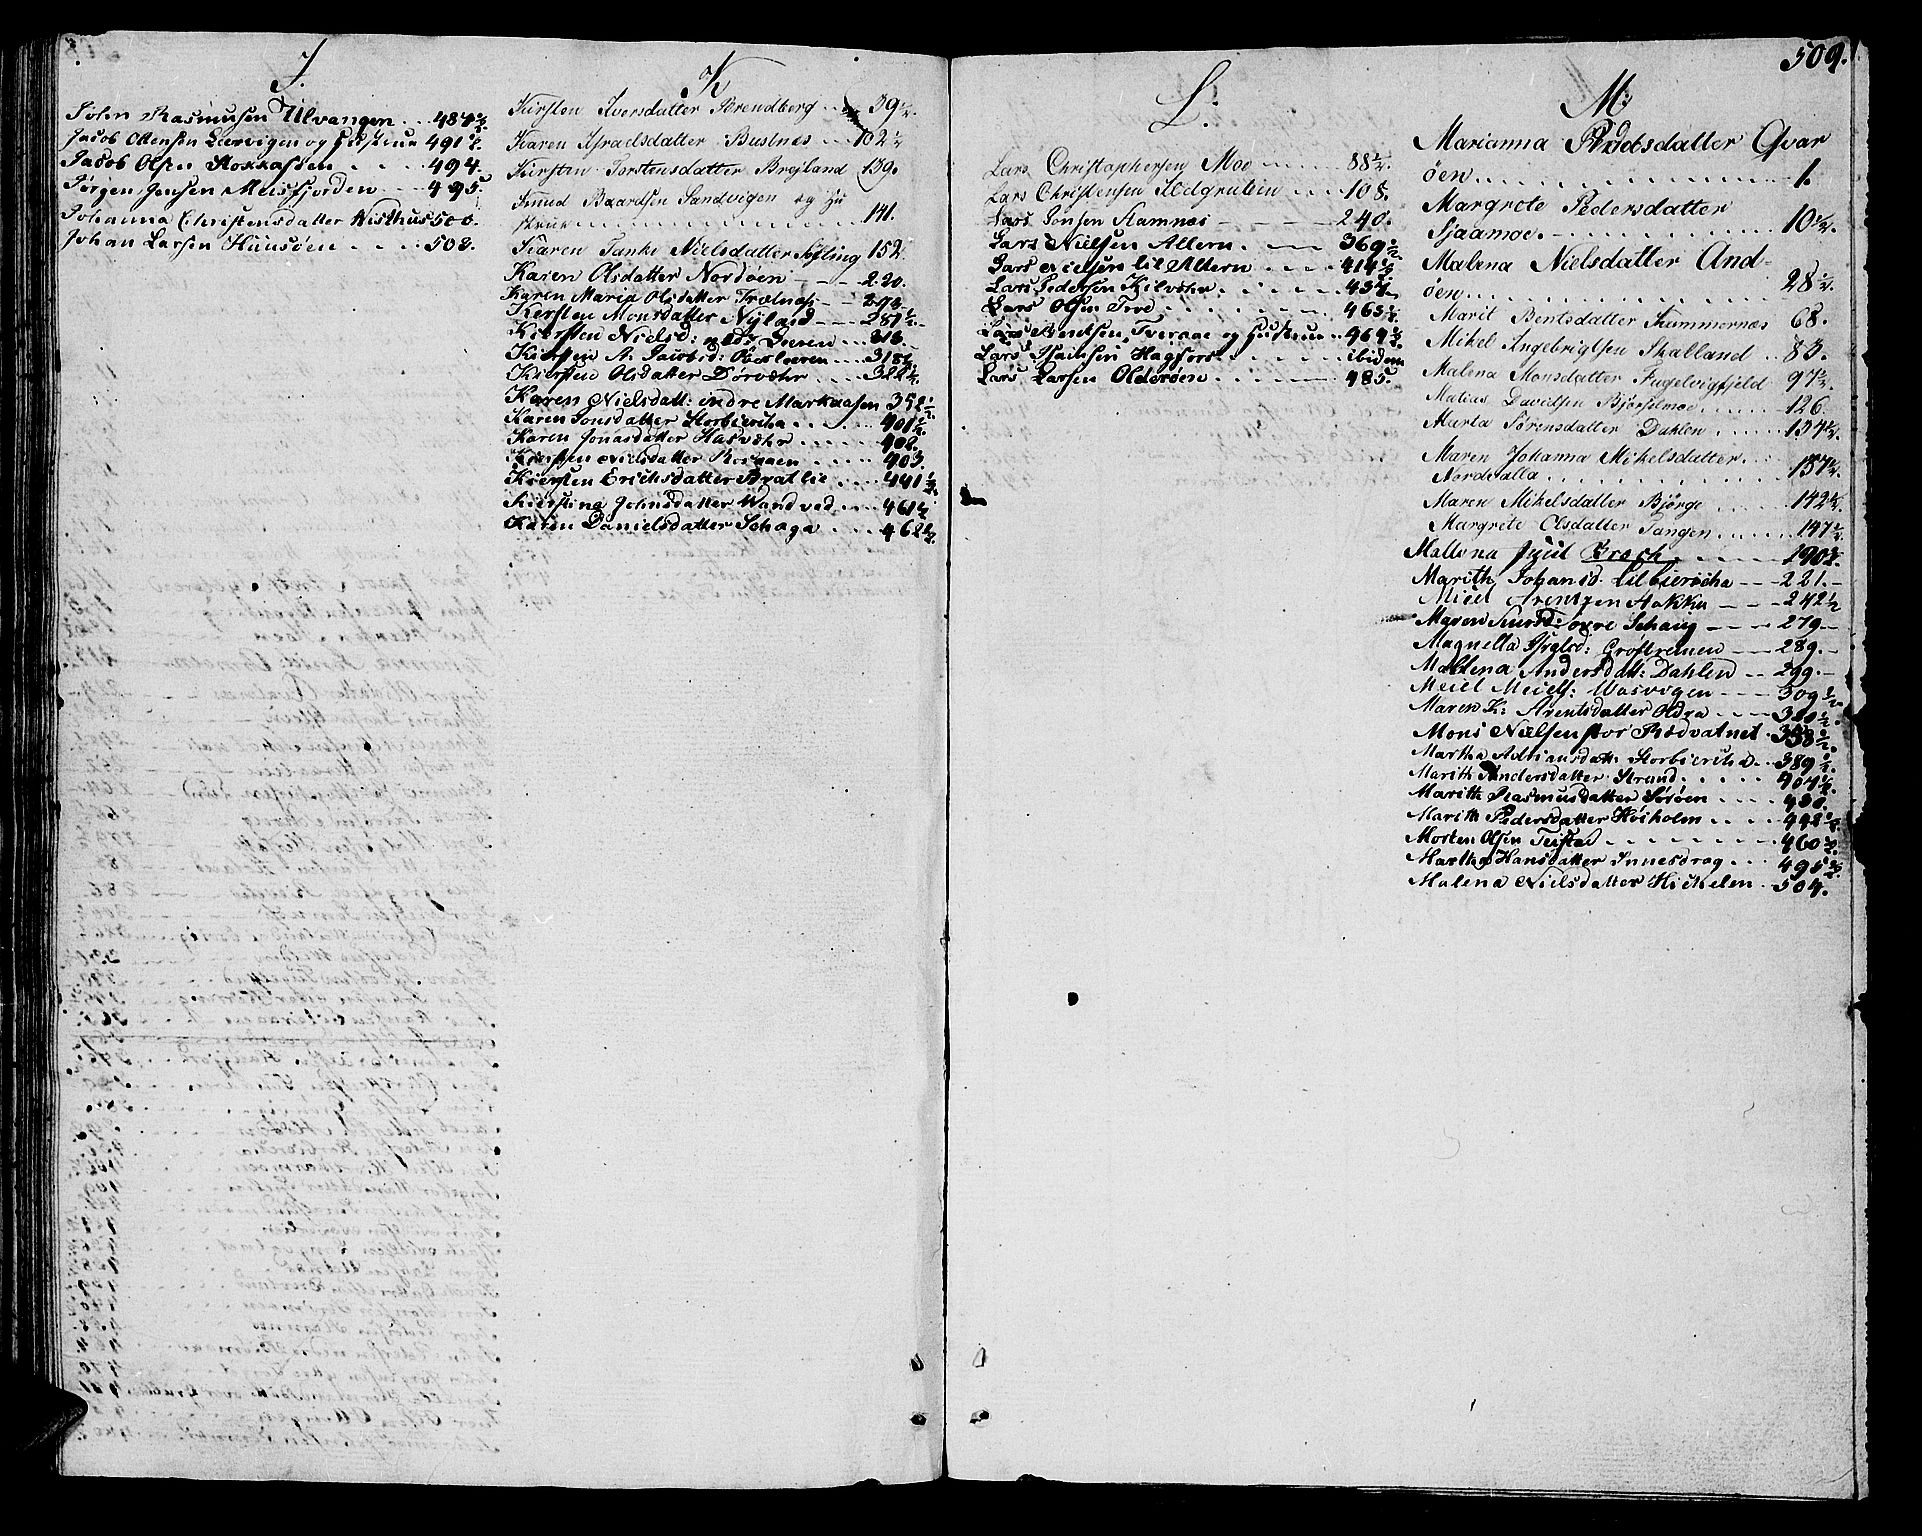 J.
John Rasmusen Ulvangen . . . 487½
Jacob Ottensen Lærvigen og Hustrue 491½
Jacob Olsen Stoxaasen . . . . 494.
Jørgen Jensen Meisfjorden . . . 495.
Johanna Christensdatter Nisthus 500.
Johan Larsen Huusøen . . . . 508.
K
Kirsten Iversdatter Brendberg . . 39½
Karen Israelsdatter Bustnes . . 102½
Kirsten Torstensdatter Brejland 139.
Knud Baardsen Sandvigen og Hu
strue . . . . . . . . 141.
Karen Tanke Nielsdatter Søfling 152.
Karen Olsdatter Nordøen - - - 220.
Karen Maria Olsdatter Trælnæs - -
Kersten Monsdatter Nyland - - - 287½
Kiersten Nielsd: Leeren . . . 313.
Kiersten A. Jacobsd: . . . 318½
Kiersten Olsdatter Dørvæhr . . . . 322½.
Karen Nielsdatt: indre Markaasen 352½
Karen Jonsdatter Storbiericha . . . . 401½.
Karen Jonasdatter Hasvæhr . . . . 402.
Kiersten Nielsdatter Rosaaen . . . . 403.
Kiersten Erichsdatter Bratlie . . . . 441½.
Kierstina Johnsdatter Wandved . . . 461½
Karen Danielsdatter Schaga . . . 462½.
L.
Lars Christophersen Moe . . . . 88½
Lars Christensen Ildgruben . . . . 108.
Lars Jonsen Hamnæs - - - 240.
Lars Nielsen Altern . - - 369½
Lars Nielsen lil Altern . . . . 414½
Lars Pedersen Kilvæhr . . . . . 437
Lars Olsen Troe . . . . . . 465½
Lars Bentsen, Tveraae og Hustrue . . 469½
Lars Hagfors . . . . ibidem
Lars Larsen Olderøen . . . . . 485.
509.
M:
Marianna Pedersdatter Qvar
øen . . . . . . . . . . 1.
Margrete Pedersdatter
Sjaamoe . . . . . . . . 10½.
Malena Nielsdatter And-
øen . . . . . . . . . . 28½.
Marit Bentsdatter Summernæs 68.
Mikel Ingebrigtsen Skalland . . 83.
Malena Monsdatter Fugelvigfjeld 97½.
Matias Davidsen Bjørselmoe . . . . 126.
Marta Sørensdatter Dahlen . . . . . 134½.
Maren Johanna Mikelsdatter . .
Nordvalla . . . . . . . . . 137½.
Maren Mikelsdatter Bjørge . . . . 142½.
Margrete Olsdatter Tangen . . . . 147½
Mallena Juul Broch . - - - 190½.
Marith Johansd. Lilbiericha - - 221.-
Micel Arentzen Hakka - - - 242½
Maren Knudsd: øvre Schaug - - - 279-
Magnella Israelsd: Grøftremen - - 289.-
Mallena Andersdatt: Dahlen . . 299.-
Meiel Meiels: Wasvogen - - - 309½
Maren K: Arentsdatter Oldra . . . 320½.
Mons Nielsen stor Rødvatnet . 338½
Martha Adriansdatt: Storbiericha . . 389½
Marith Andersdatter Strand . . . . 407½
Marith Rasmusdatter Sørøen . . . 430.
Marith Pedersdatter Høiholm . . . . 442½
Morten Olsen Teistad . . . . . . 460½
Martha Hansdatter Innesdrag . . . 495½
Malena Nielsdatter Hickelen . . 504.